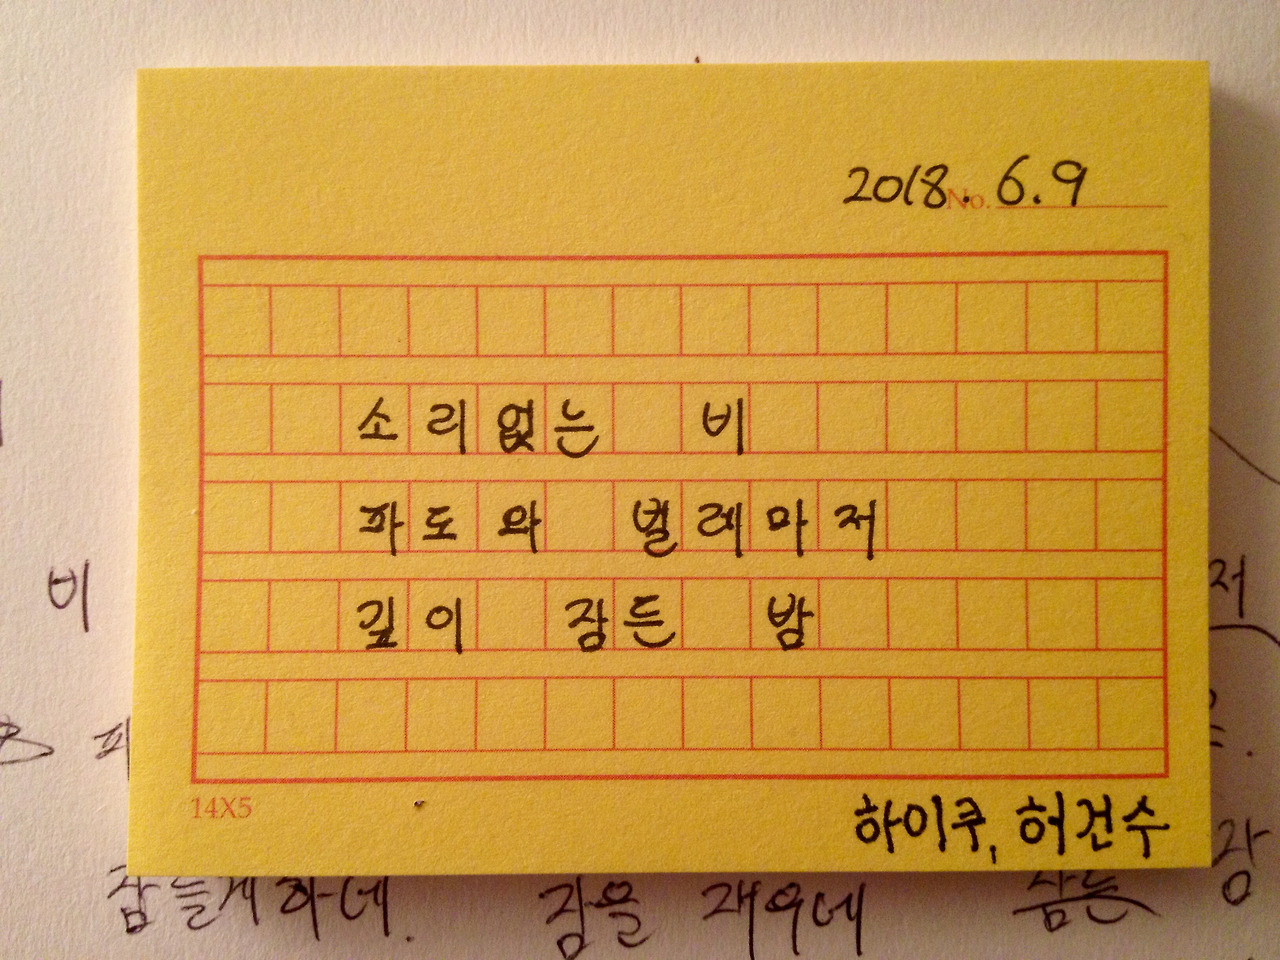 2018. 6.9
No.
소리없는 비
파도와 벌레마저
깊이 잠든 밤
14X5
하이쿠, 허건수
비
저
파
잠들게 하네.
잠을 재우네
잠든
잠